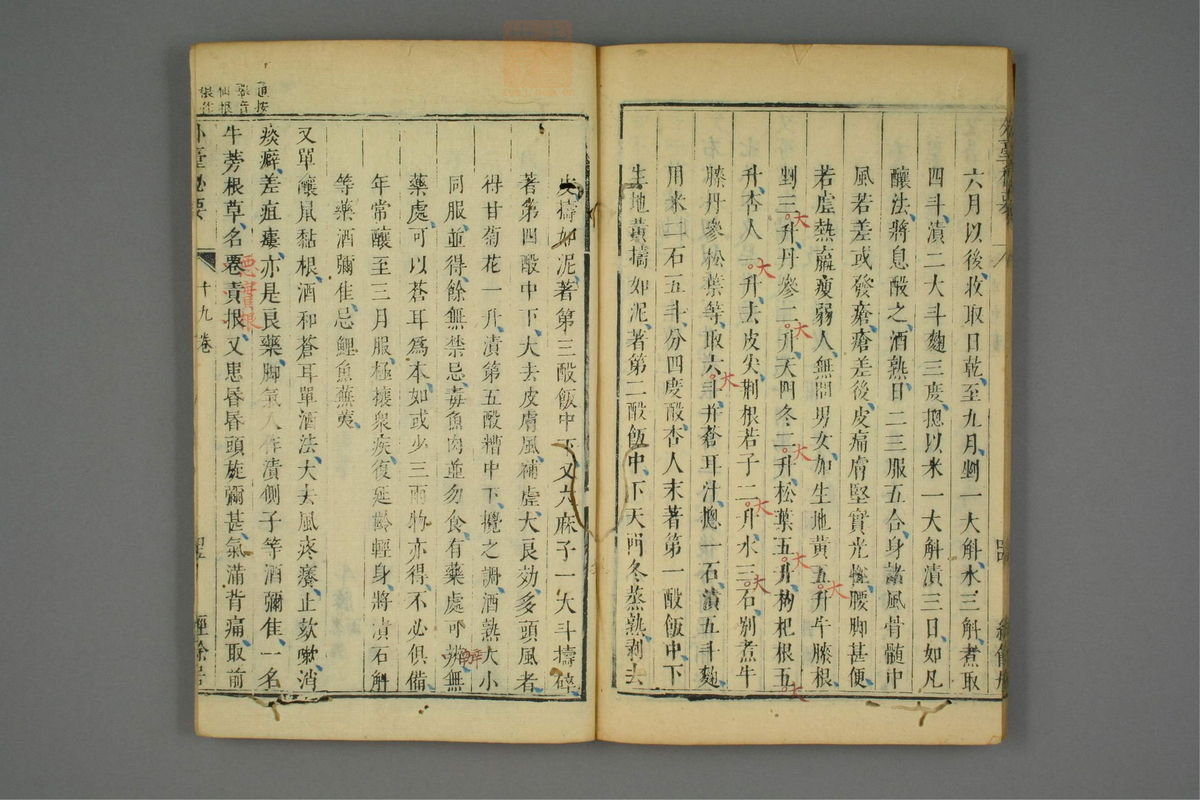 六月以後收取日乾至九月剉一大斛水三斛煮取
四斗漬二大斗麴三度揔以米一大斛漬三日如凡
釀法將息酘之酒熟日二三服五合身諸風骨髓中
風若差或發瘡瘡差後皮痛膚堅實光性腰脚甚便
若虛熱羸瘦弱人無問男女加生地黃五升牛膝根
剉三升丹參二升天門冬二升松葉五升枸杞根五
升杏人一升去皮尖荆根若子二升水三石別煮牛
膝丹參松葉等取六斗并蒼耳汁揔一石漬五斗麴
用米二石五斗分四度酘杏人末著第一酘飯中下
生地黃擣如泥著第二酘飯中下天門冬蒸熟剥去
皮擣如泥著第三酘飯中下又六麻子一大斗擣碎
著第四酘中下大去皮膚風補虛大良効多頭風者
得甘菊花一升漬第五酘糟中下攪之調酒熟大小
同服並得餘無禁忌毒魚肉並勿食有藥處可辨無
藥處可以蒼耳爲本如或少三兩物亦得不必俱備
年常釀至三月服極攘衆疾復延齡輕身將漬石斛
等藥酒彌佳忌鯉魚蕪荑
又單釀鼠黏根酒和蒼耳單酒法大去風疼癢止欬嗽消
痰癖差疽瘻亦是良藥脚氣人作漬側子等酒彌佳一名
牛蒡根草名
責根又患昏昏頭旋彌甚氣滿背痛取前
外臺秘要
十九卷
經餘居
大
大
大
大
大
大
大
大
大
大